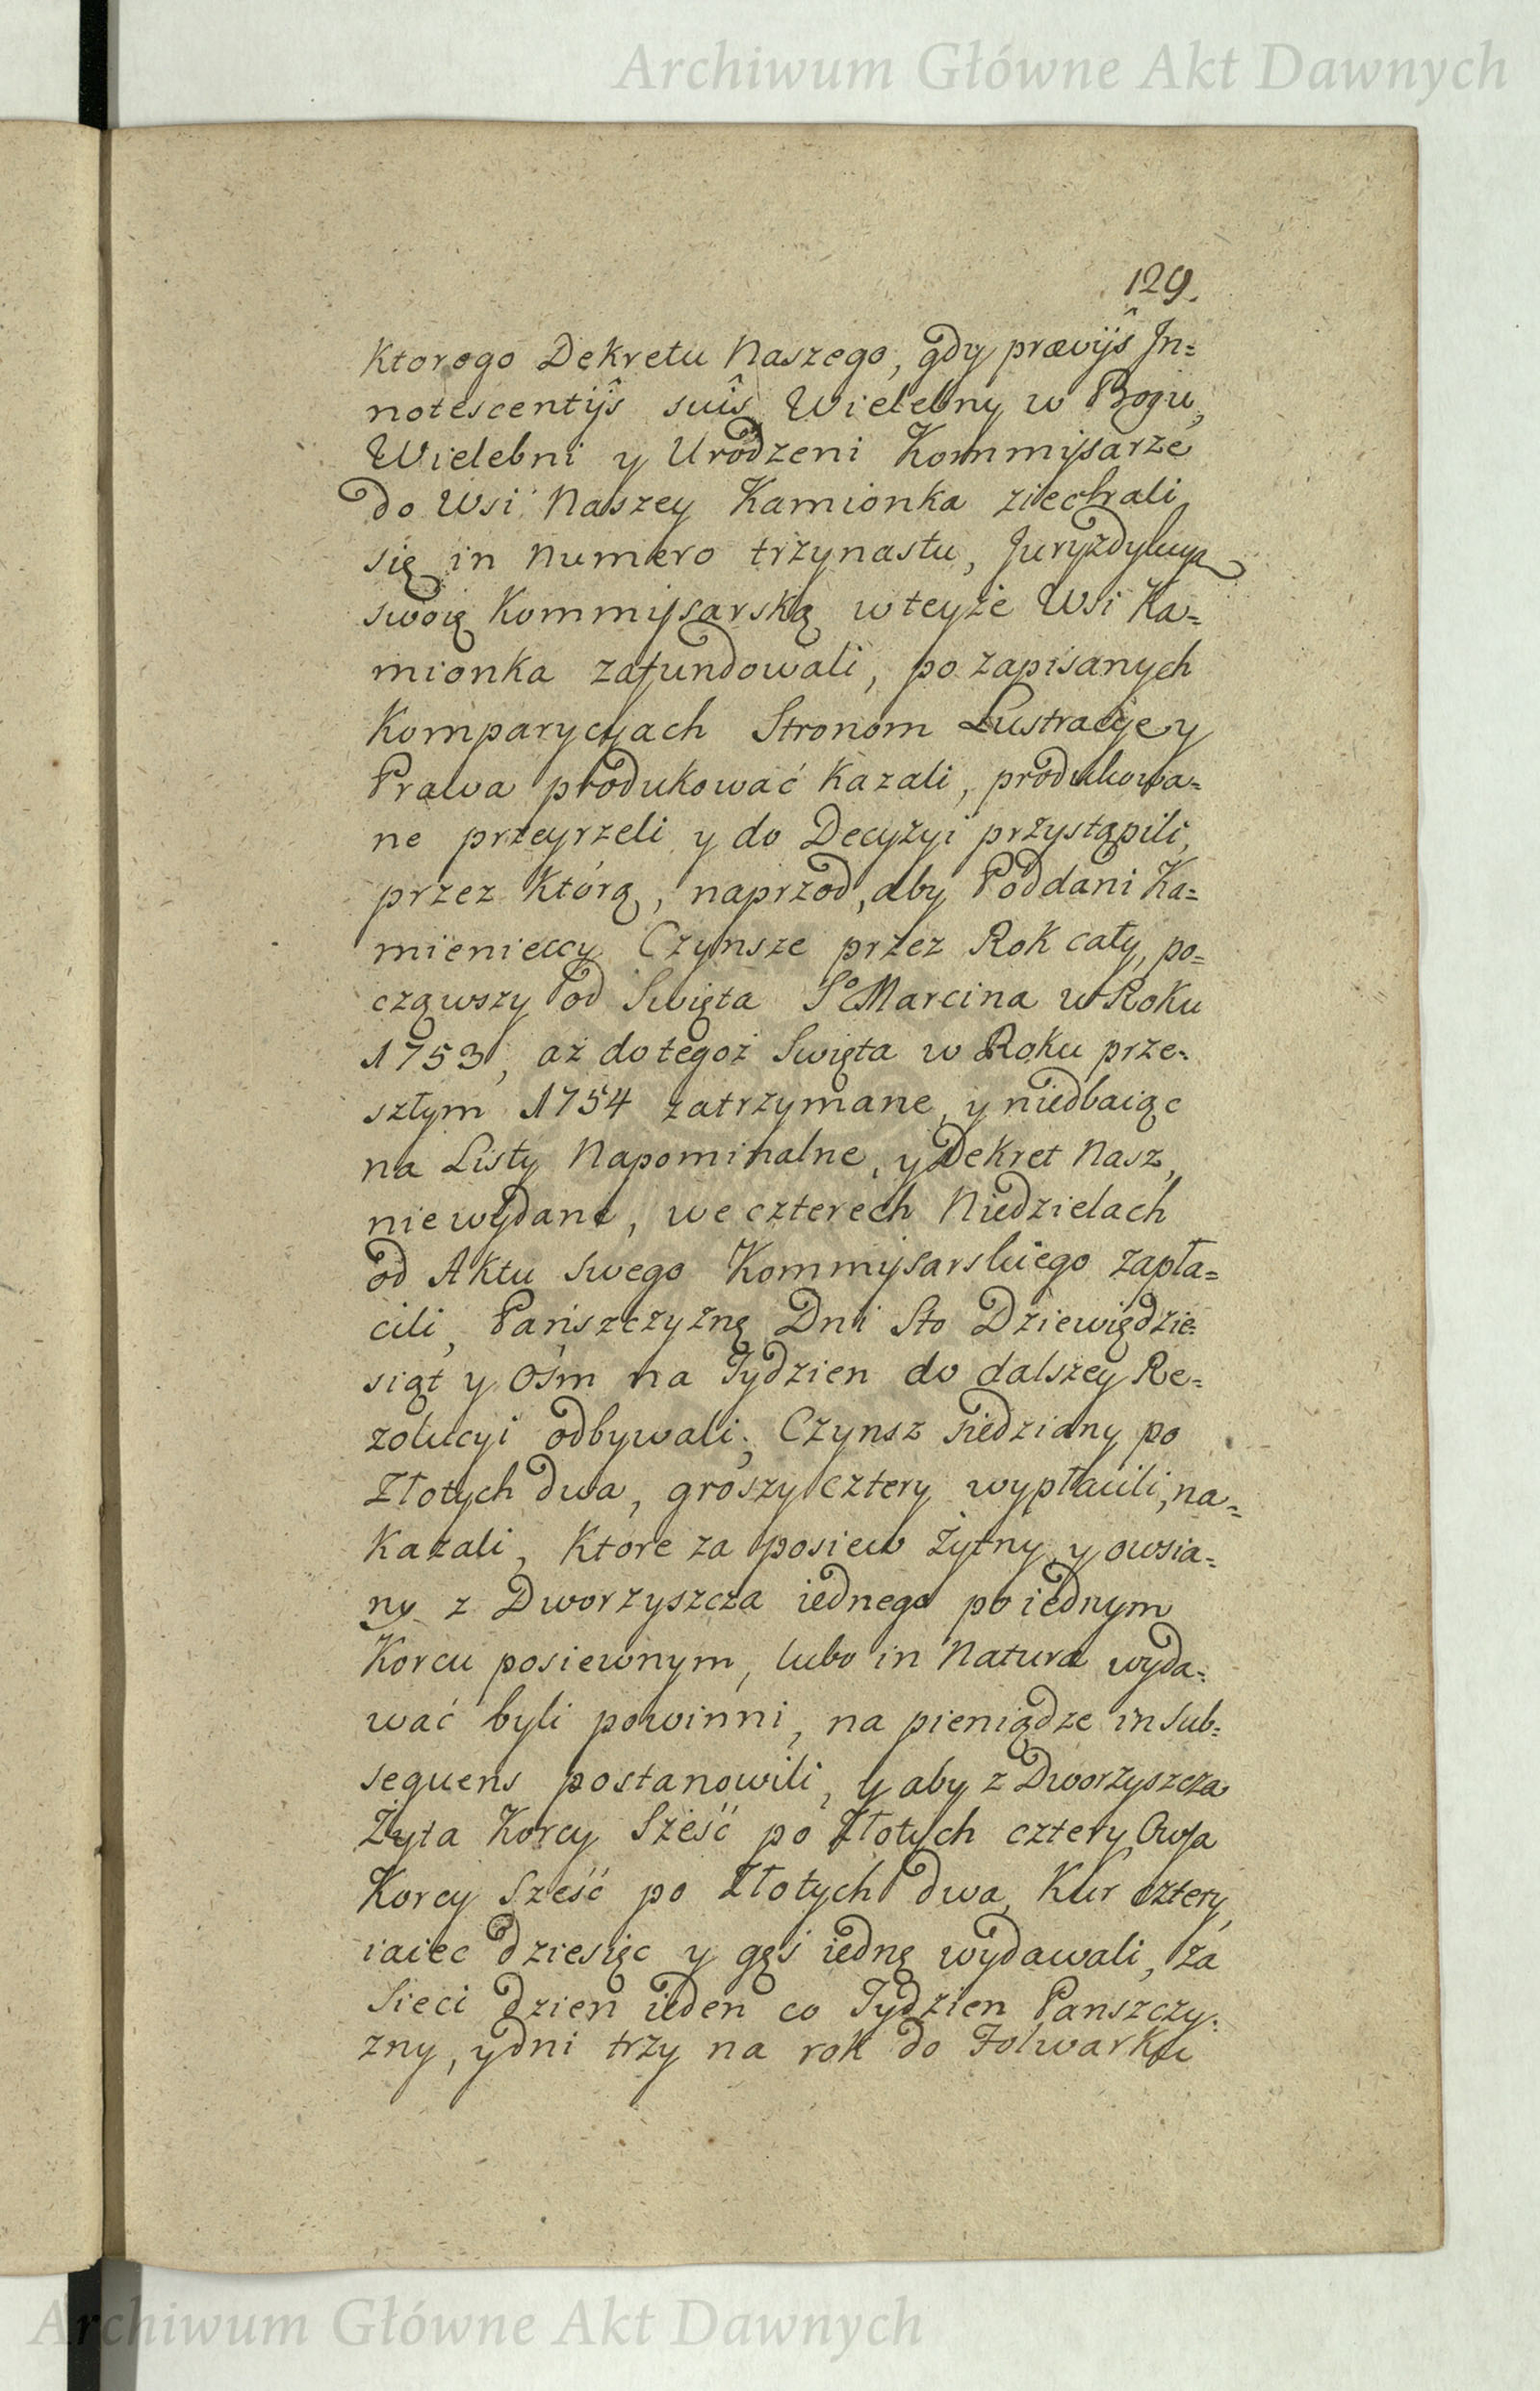 Archiwum Główne Akt Dawnych
129.
Ktorego Dekretu Naszego, gdy prævijŝ In=
notescentijŝ suiŝ Wielebny w Bogu,
Wielebni y Urodzeni Kommisarze
do Wsi Naszey Kamionka ziechali
się in numero trzynastu, Juryzdykcyą
swoię Kommisarską w teyże Wsi Ka=
mionka zafundowali, po zapisanych
Komparycyach Stronom Lustracye y
Prawa produkować kazali, produkowa=
ne przeyrzeli y do Decyzyi przystąpili,
przez którą, naprzod, aby Poddani Ka=
mienieccy Czynsze przez Rok cały, po=
cząwszy od Swięta So Marcina w Roku
1753, aż do tegoż Swięta w Roku prze=
szłym 1754 zatrzymane, y niedbaiąc
na Listy Napominalne, y Dekret Nasz,
niewydane, we czterech Niedzielach
od Aktu swego Kommisarskiego zapła=
cili, Pańszczyznę Dni Sto Dziewiędzie=
siąt y Ośm na Tydzien do dalszey Re=
zolucyi odbywali, Czynsz siedziany po
Złotych dwa, groszy cztery wypłacili, na=
kazali, Ktore za posiew Żytny y owsia=
ny z Dworzyszcza iednego po iednym
Korcu posiewnym, lubo in Natura wyda=
wać byli powinni, na pieniądze in sub=
sequens postanowili, y aby z Dworzyszcza
Żyta Korcy Sześć po Złotych cztery Owsa
Korcy Sześć po Złotych dwa, Kur cztery,
iaiec dziesięc y gęś iednę wydawali, za
Sieci dzien ieden co Tydzien Panszczy=
zny, y dni trzy na rok do Folwarku
Archiwum Główne Akt Dawnych